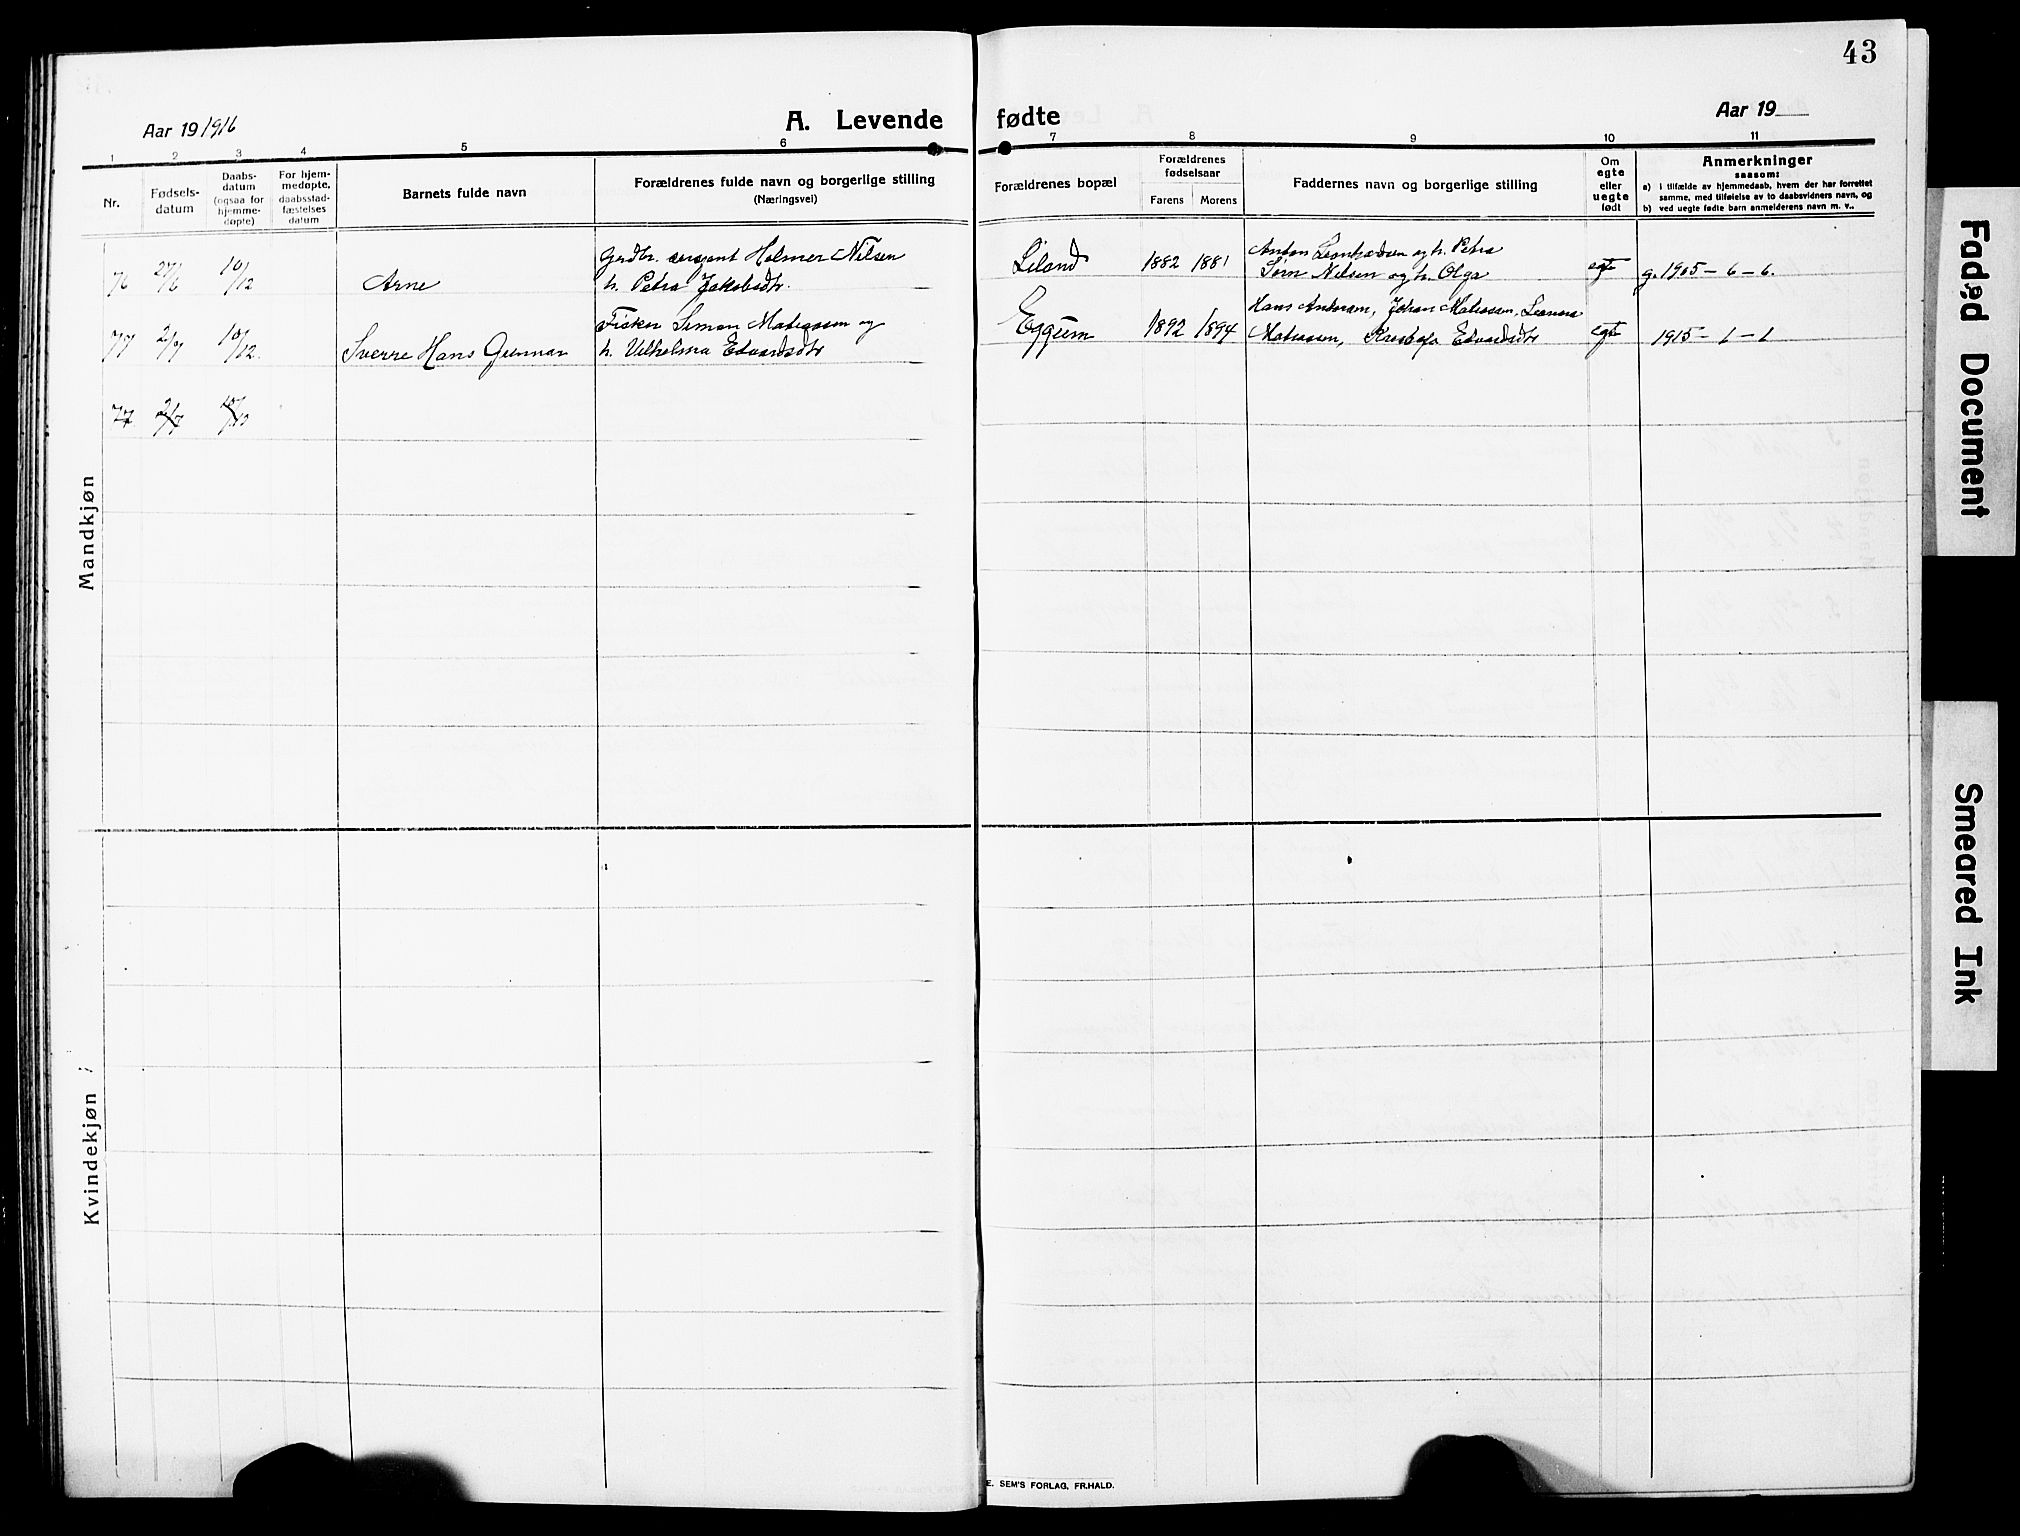 43
Aar 19 1916
A. Levende fødte
Aar 19
1 2 3 4 5 6 7 8 9 10 11
Nr.
Fødsels-
datum
Daabs-
datum
(ogsaa for
hjemme-
døpte)
For hjem-
medøpte,
daabsstad-
fæstelses
datum
Barnets fulde navn
Forældrenes fulde navn og borgerlige stilling
(Næringsvei)
Forældrenes bopæl
Forældrenes
fødselsaar
Farens Morens
Faddernes navn og borgerlige stilling
Om
egte
eller
uegte
født
Anmerkninger
saasom:
a) i tilfælde av hjemmedaab, hvem der har forrettet
samme, med tilføielse av to daabsvidners navn, og
b) ved uegte fødte barn anmelderens navn m. v..
Mandkjøn
76 27/6 10/12 Arne
Holmer Nilsen
h. Petra Jakobsdtr.
Liland 1882 1881
Anton og h. Petra
Nilsen og h. Olga
egte g. 1905 – 6 – 6.
77 2/9 10/12. Sverre Hans Gunnar
Fisker Simon Matiassen og
h. Vilhelma Edvardsdtr
Eggum 1892 1894
Hans Andersen, Johan Matiassen, Leonora
Matiassen, Edvardsdtr
egte 1915 – 1 – 1
77
Kvindekjøn
E. SEM'S FORLAG, FR.HALD.
Faded Document
Smeared Ink